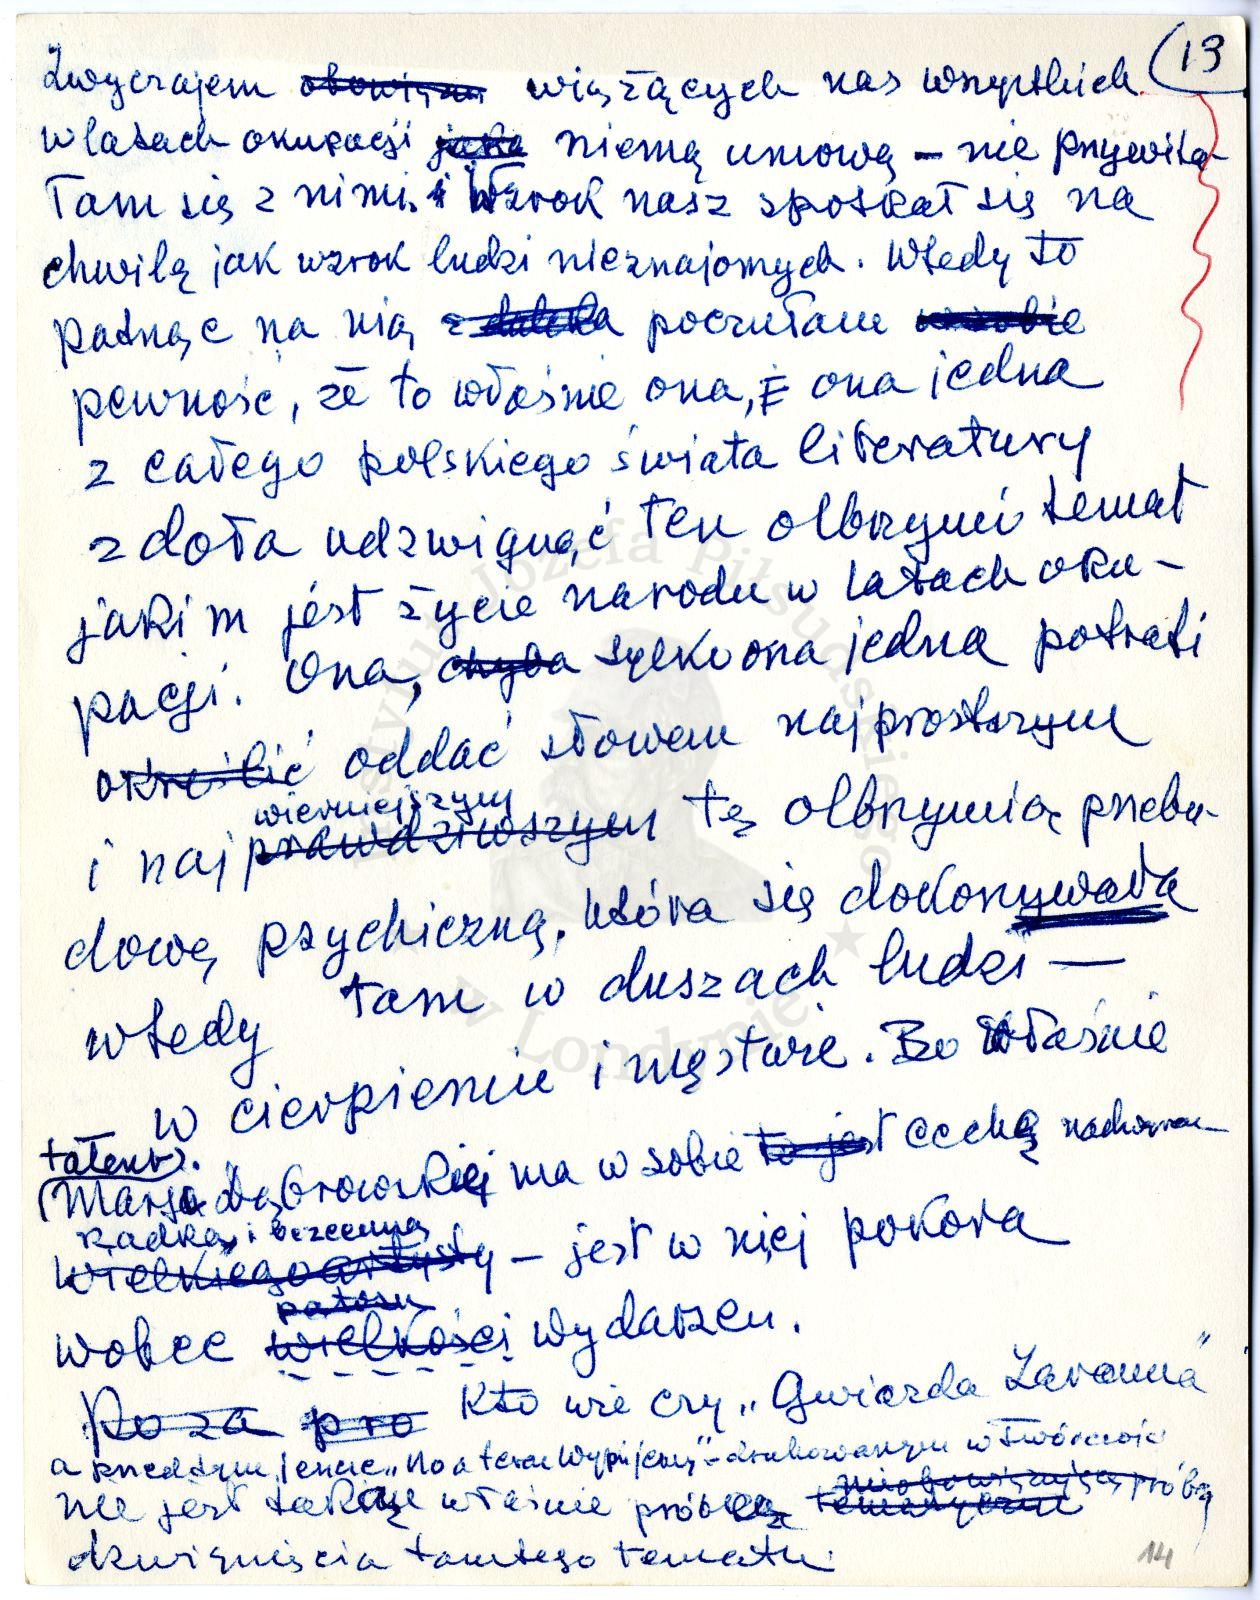 13
Zwyczajem obowiązu wiążących nas wszystkich
w latach okupacji jaka niemą umową – nie przywita-
łam się z nimi. i Wzrok nasz spotkał się na
chwilę jak wzrok ludzi nieznajomych. Wtedy to
patrząc na nią z daleka poczułam w sobie
pewność, że to właśnie ona, ona jedna
z całego polskiego świata literatury
zdoła udźwignąć ten olbrzymi temat
jakim jest życie narodu w latach oku-
pacji. Ona, chyba tylko ona jedna potrafi
określić oddać słowem najprostszym
wierniejszym
i najprawdziwszym tę olbrzymią przebu-
dowę psychiczną, która się dokonywała
wtedy tam w duszach ludzi —
w cierpieniu i męstwie. Bo właśnie
talent
(Marii Dąbrowskiej ma w sobie to jest cechę
rzadką i bezcenną
wielkiego artysty – jest w niej pokora
patosu
wobec wielkości wydarzeń.
Poza pro Kto wie czy „Gwiazda Zaranna"
a przedtym jeszcze „No a teraz wypijemy" – drukowanym w Twórczości
nie jest taką właśnie próbą
dźwignięcia tamtego tematu.
14
Instytut Józefa Piłsudskiego
w Londynie